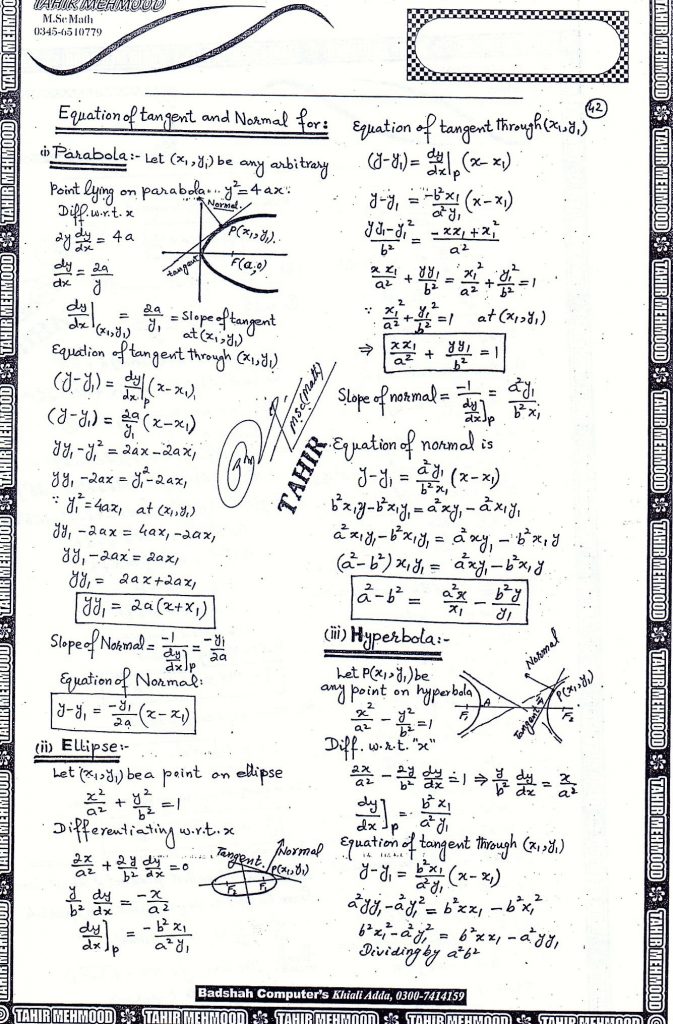 TAHIR MEHMOOD
M.Sc Math
0345-6510779
42
Equation of tangent and Normal for:
(i) Parabola:- Let (x₁,y₁) be any arbitrary
Point lying on parabola y² = 4ax.
Diff. w.r.t. x
2y dy/dx = 4a
dy/dx = 2a/y
dy/dx|(x₁,y₁) = 2a/y₁ = Slope of tangent
at (x₁,y₁)
Normal
P(x₁,y₁)
F(a,0)
tangent
Equation of tangent through (x₁,y₁)
(y-y₁) = dy/dx|p (x-x₁)
(y-y₁) = 2a/y₁ (x-x₁)
yy₁-y₁² = 2ax-2ax₁
yy₁-2ax = y₁²-2ax₁
∵ y₁²=4ax₁ at (x₁,y₁)
yy₁-2ax = 4ax₁-2ax₁
yy₁-2ax = 2ax₁
yy₁ = 2ax+2ax₁
yy₁ = 2a(x+x₁)
Slope of Normal = -1/dy/dx]p = -y₁/2a
Equation of Normal:
y-y₁ = -y₁/2a (x-x₁)
(ii) Ellipse:-
Let (x₁,y₁) be a point on ellipse
x²/a² + y²/b² = 1
Differentiating w.r.t. x
2x/a² + 2y/b² dy/dx = 0
y/b² dy/dx = -x/a²
dy/dx]p = -b²x₁/a²y₁
Tangent
Normal
P(x₁,y₁)
F₂ F₁
Equation of tangent through (x₁,y₁)
(y-y₁) = dy/dx|p (x-x₁)
y-y₁ = -b²x₁/a²y₁ (x-x₁)
yy₁-y₁²/b² = -xx₁+x₁²/a²
xx₁/a² + yy₁/b² = x₁²/a² + y₁²/b² = 1
∵ x₁²/a² + y₁²/b² = 1 at (x₁,y₁)
⇒ xx₁/a² + yy₁/b² = 1
Slope of normal = -1/dy/dx]p = a²y₁/b²x₁
Equation of normal is
y-y₁ = a²y₁/b²x₁ (x-x₁)
b²x₁y-b²x₁y₁ = a²xy₁-a²x₁y₁
a²x₁y₁-b²x₁y₁ = a²xy₁-b²x₁y
(a²-b²)x₁y₁ = a²xy₁-b²x₁y
a²-b² = a²x/x₁ - b²y/y₁
(iii) Hyperbola:-
Let P(x₁,y₁) be
any point on hyperbola
x²/a² - y²/b² = 1
Diff. w.r.t. "x"
Normal
P(x₁,y₁)
Tangent
F₁ A F₂
2x/a² - 2y/b² dy/dx = 1 ⇒ y/b² dy/dx = x/a²
dy/dx]p = b²x₁/a²y₁
Equation of tangent through (x₁,y₁)
y-y₁ = b²x₁/a²y₁ (x-x₁)
a²yy₁-a²y₁² = b²xx₁-b²x₁²
b²x₁²-a²y₁² = b²xx₁-a²yy₁
Dividing by a²b²
M.Sc(Math)
TAHIR
Badshah Computer's Khiali Adda, 0300-7414159
TAHIR MEHMOOD TAHIR MEHMOOD TAHIR MEHMOOD TAHIR MEHMOOD TAHIR MEHMOOD